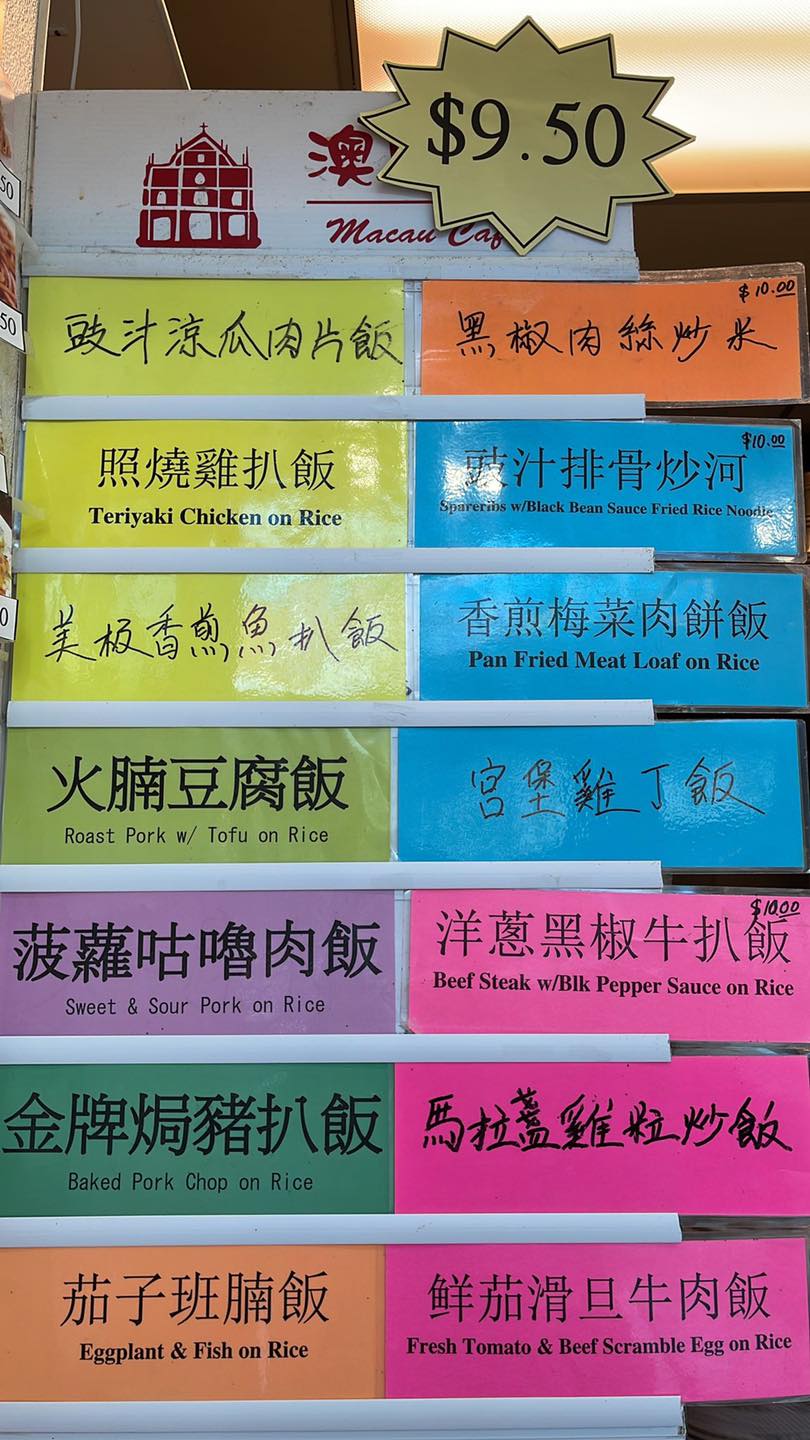 $9.50
澳
Macau Caf
50
50
0
豉汁涼瓜肉片飯
$10.00
黑椒肉絲炒米
照燒雞扒飯
Teriyaki Chicken on Rice
$10.00
豉汁排骨炒河
Spareribs w/Black Bean Sauce Fried Rice Noodle
美極香煎魚扒飯
香煎梅菜肉餅飯
Pan Fried Meat Loaf on Rice
火腩豆腐飯
Roast Pork w/ Tofu on Rice
宮堡雞丁飯
菠蘿咕嚕肉飯
Sweet & Sour Pork on Rice
$10.00
洋蔥黑椒牛扒飯
Beef Steak w/Blk Pepper Sauce on Rice
金牌焗豬扒飯
Baked Pork Chop on Rice
馬拉盞雞粒炒飯
茄子班腩飯
Eggplant & Fish on Rice
鮮茄滑旦牛肉飯
Fresh Tomato & Beef Scramble Egg on Rice